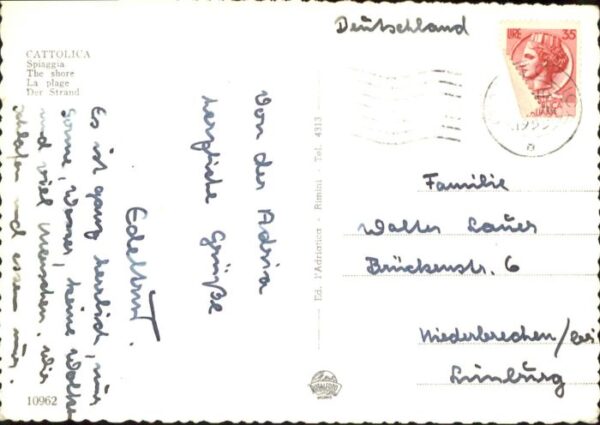 CATTOLICA
Spiaggia
The shore
La plage
Der Strand
Von der Adria
herzliche Grüße
Edeltrud.
Es ist ganz herrlich, nur
Sonne, Wasser, keine Wolke
und viel Menschen. Wir
schlafen und essen nur.
10962
Ed. l'Adriatica - Rimini - Tel. 4313
Deutschland
LIRE 35
Familie
Walter Lauer
Brückenstr. 6
Niederbrechen/bei
Limburg